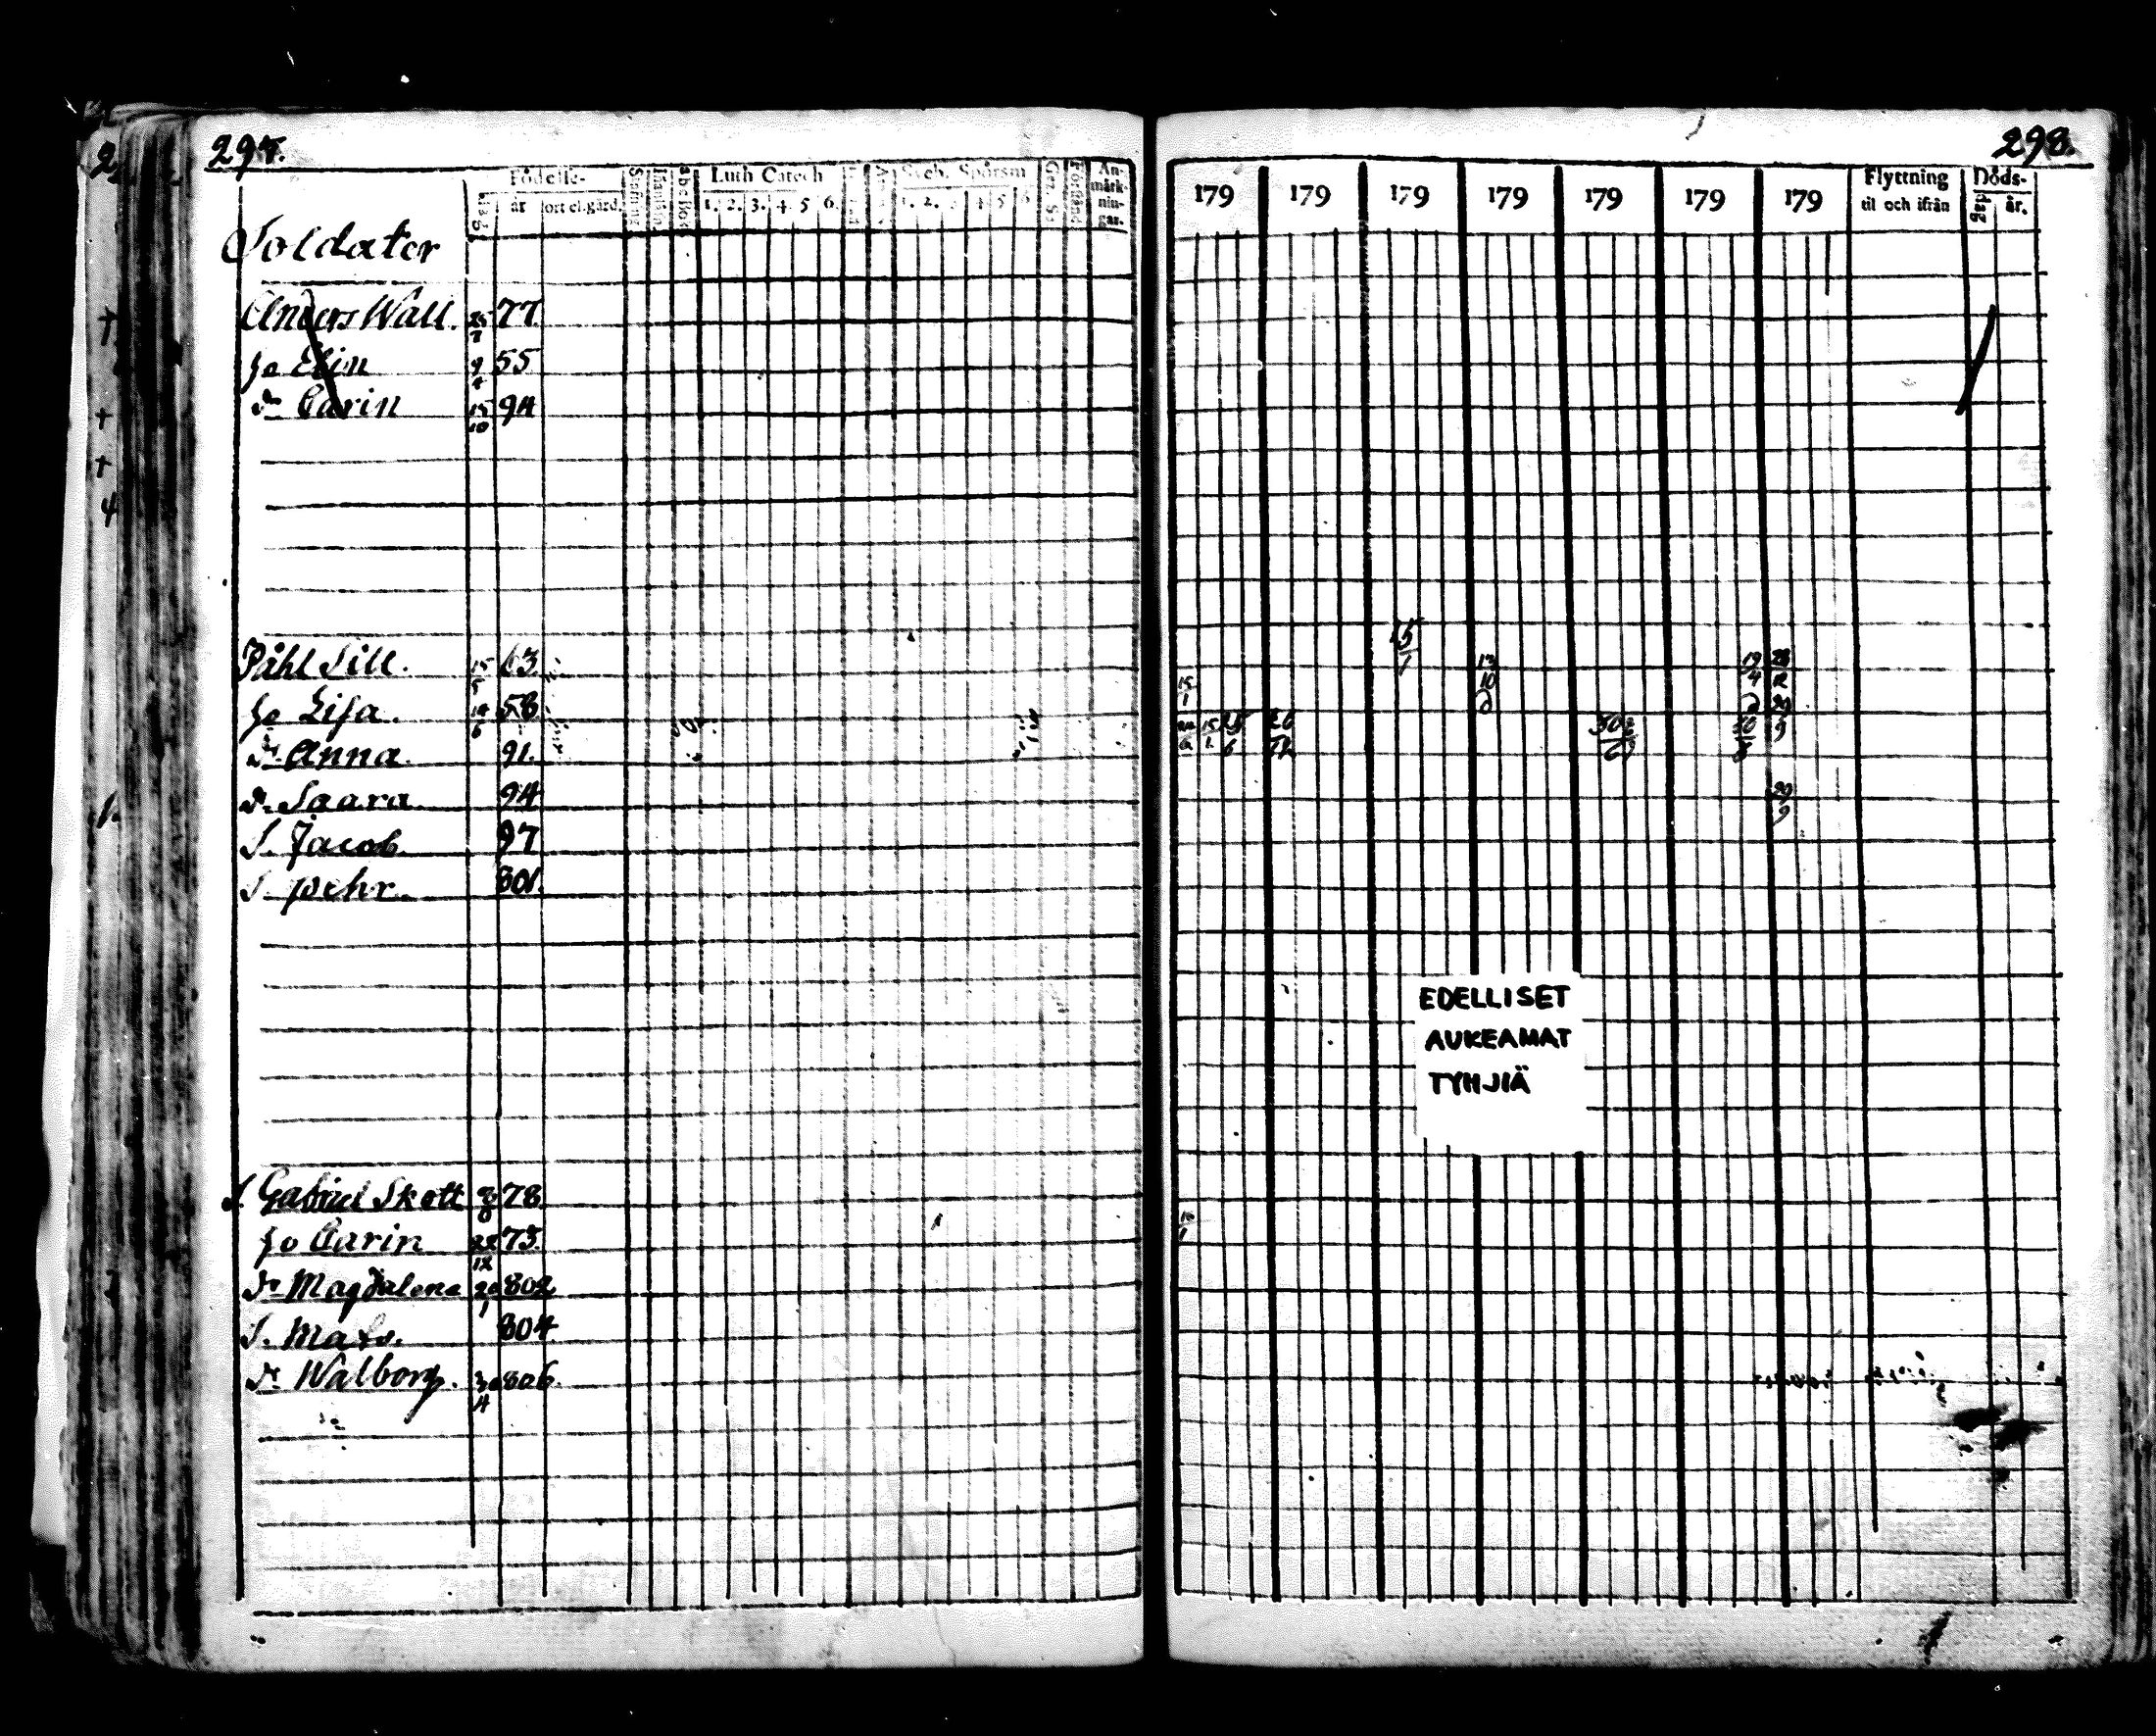 297.
Födelse-
år
ort el. gård.
Luth Catech
1. 2. 3. 4. 5 6.
Sveb. Spörsm
1. 2. 3 4 5 6
An-
märk-
nin-
gar.
Soldater
Anders Wall. 77.
ho Elin 9/4 55
dr Carin 15/10 94
Påhl Sill. 15/5 63.
ho Lisa. 58
dr Anna. 91.
dr Saara 94
S. Jacob. 97
S. pehr. 801.
S. Gabriel Skott 78.
ho Carin 75.
dr Magdalena 802
S. Mats. 804
dr Walborg. 30/4 806.
298.
179 179 179 179 179 179 179
Flyttning
til och ifrån
Döds-
dag år.
15/1
13/10
19/4 28/12
15/1
15/1
20/9
20/9
EDELLISET
AUKEAMAT
TYHJIÄ